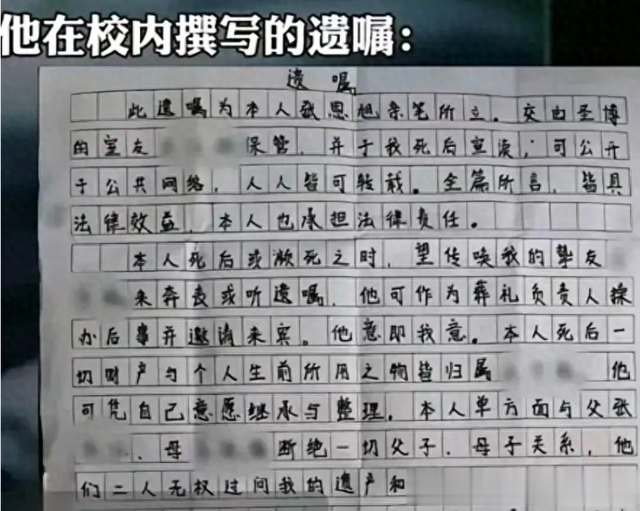 他在校内撰写的遗嘱：
遗嘱
此遗嘱为本人张恩旭亲笔所立。交由圣博
的室友 保管，并于我死后宣读；可公开
于公共网络，人人皆可转载。全篇所言，皆具
法律效益，本人也承担法律责任。
本人死后或濒死之时，望传唤我的挚友
来奔丧或听遗嘱，他可作为葬礼负责人操
办后事并邀请来宾。他意即我意。本人死后一
切财产与个人生前所用之物皆归属 他
可凭自己意愿继承与整理。本人单方面与父张
、母 断绝一切父子、母子关系，他
们二人无权过问我的遗产和